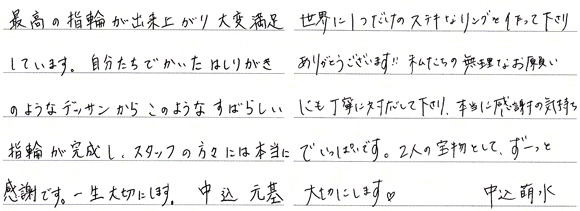 最高の指輪が出来上がり大変満足
しています。自分たちでかいたはしりがき
のようなデッサンからこのようなすばらしい
指輪が完成し、スタッフの方々には本当に
感謝です。一生大切にします。 中込 元基
世界に1つだけのステキなリングを作って下さり
ありがとうございます!! 私たちの無理なお願い
にも丁寧に対応して下さり、本当に感謝の気持ち
でいっぱいです。2人の宝物として、ずーっと
大切にします♡ 中込萌水